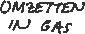 OMZETTEN
IN GAS